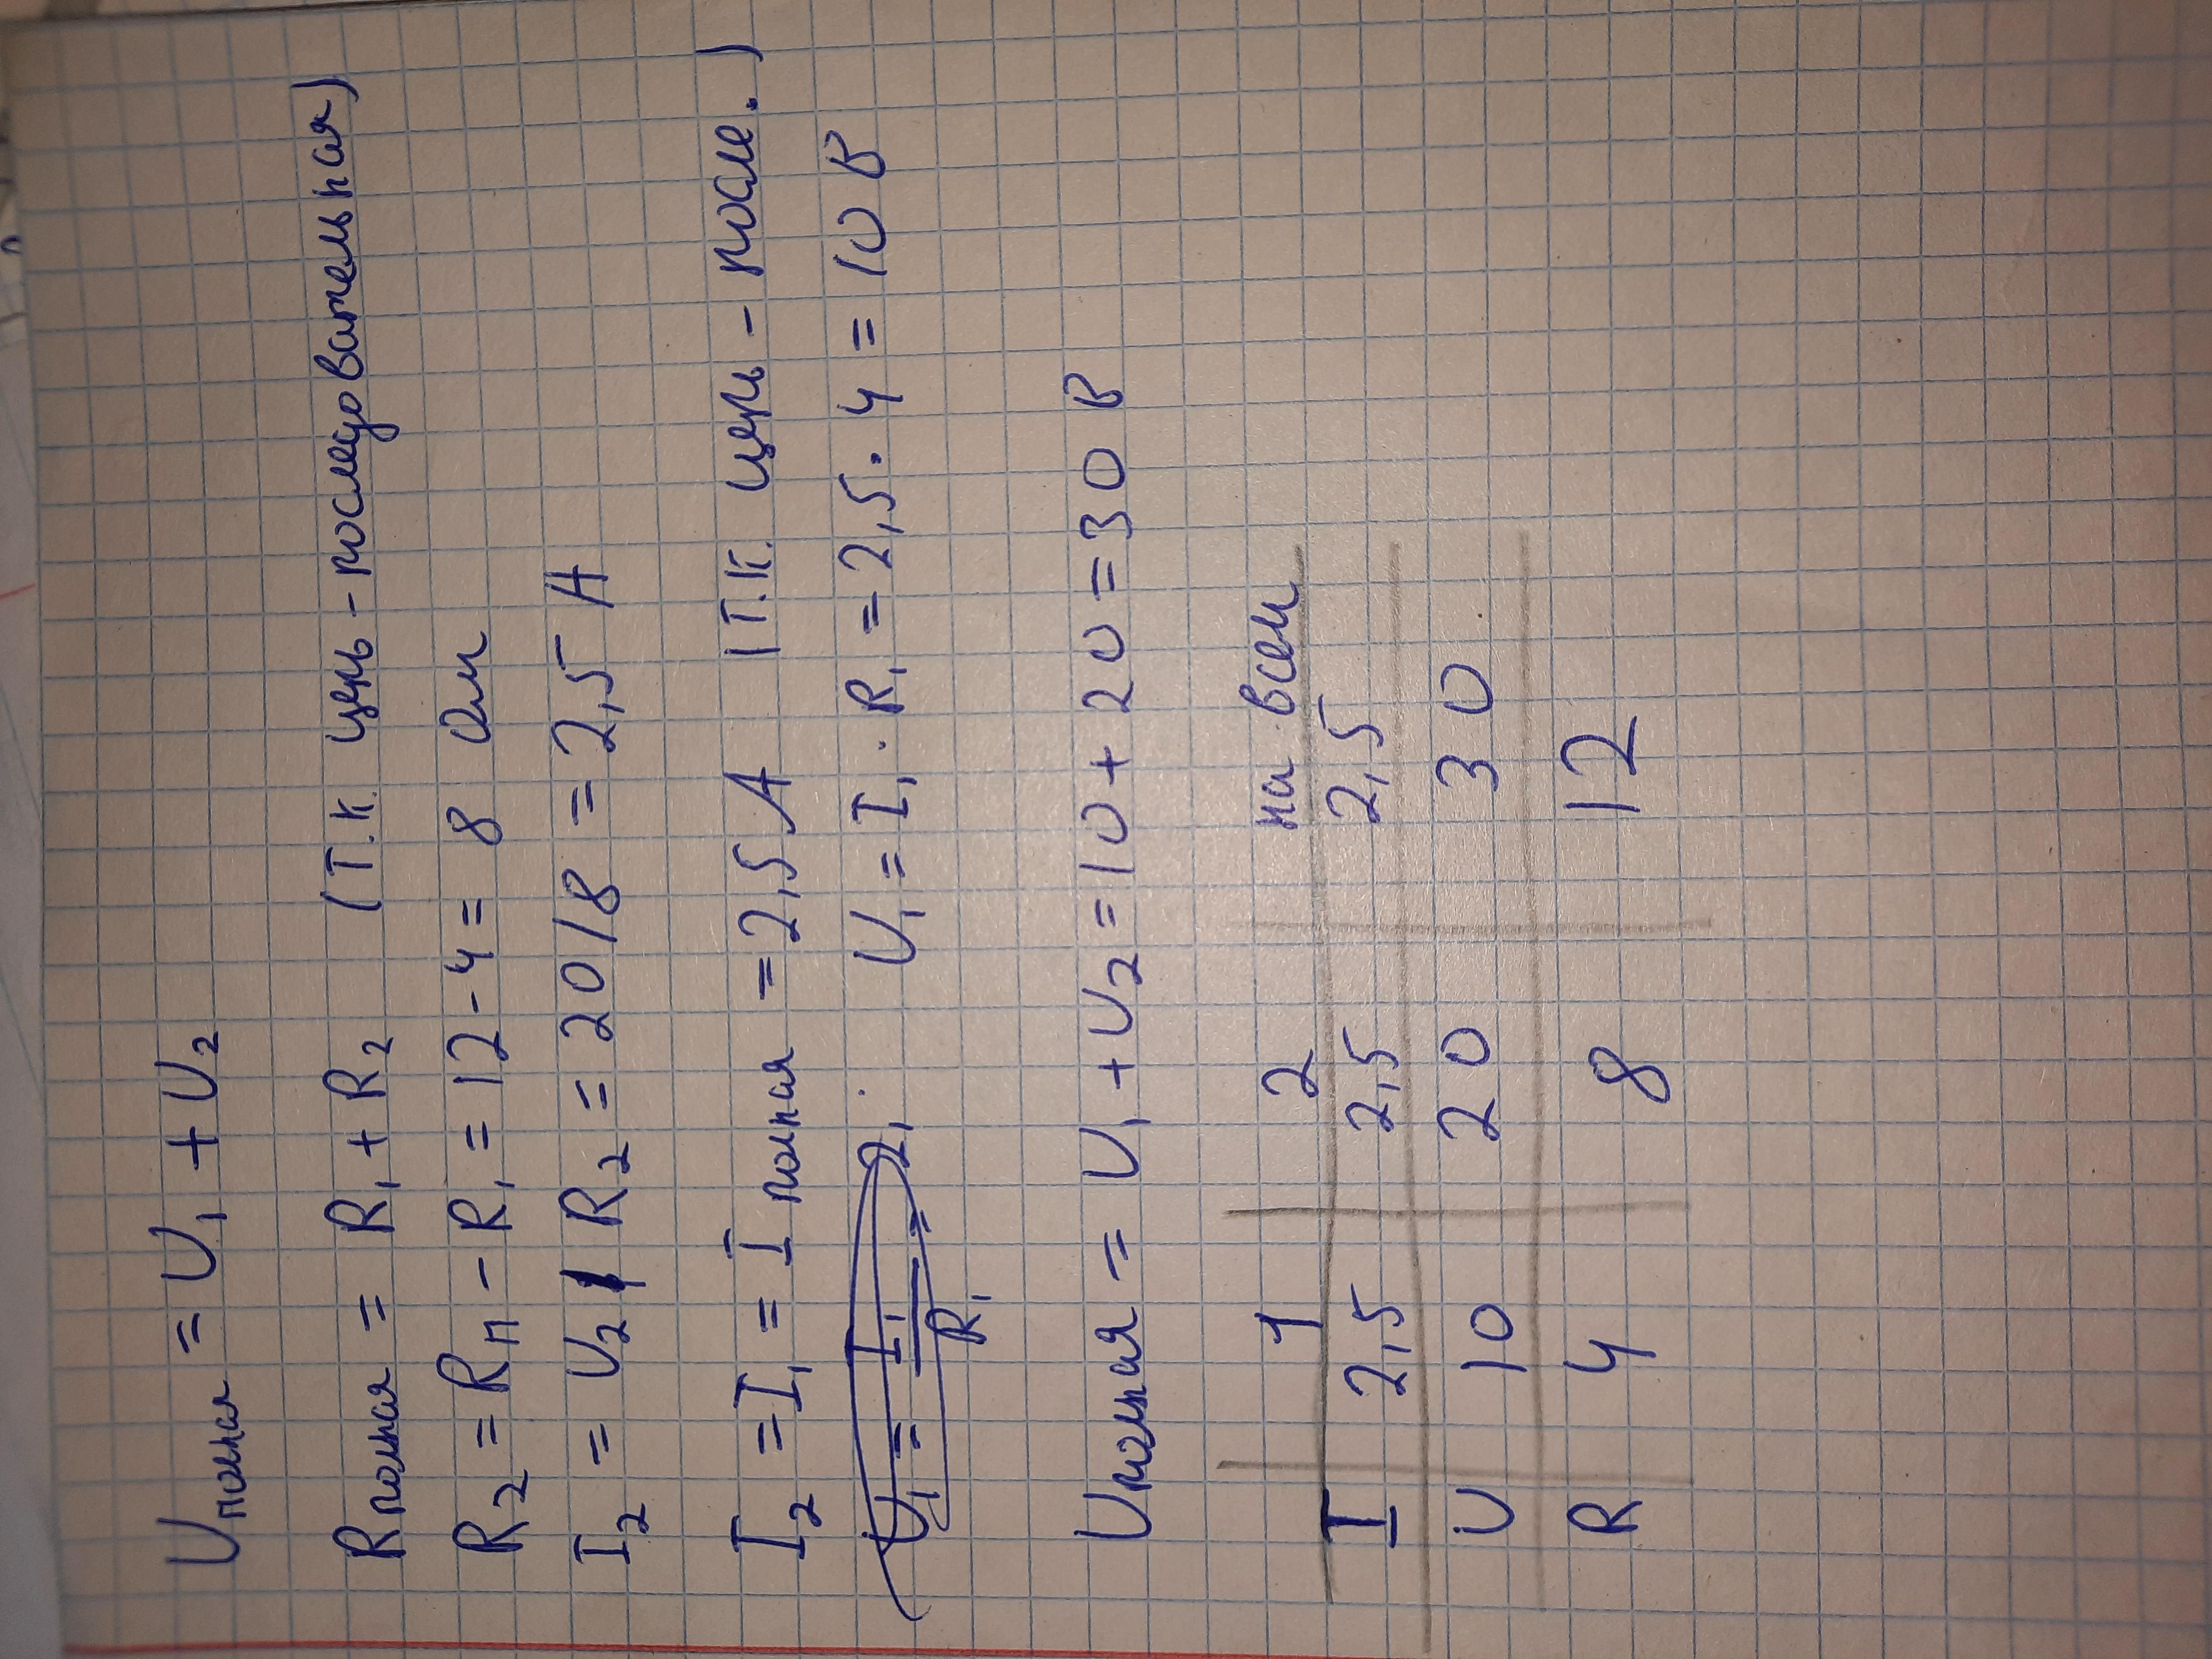 Uполная = U₁ + U₂
Rполная = R₁ + R₂ (т.к. цепь - последовательная)
R₂ = Rп - R₁ = 12 - 4 = 8 Ом
I₂ = U₂ / R₂ = 20 / 8 = 2,5 А
I₂ = I₁ = I полная = 2,5 А (т.к. цепь - после.)
U₁ = I₁ · R₁ = 2,5 · 4 = 10 В
Uполная = U₁ + U₂ = 10 + 20 = 30 В
1 2 на всем
I 2,5 2,5 2,5
U 10 20 30
R 4 8 12